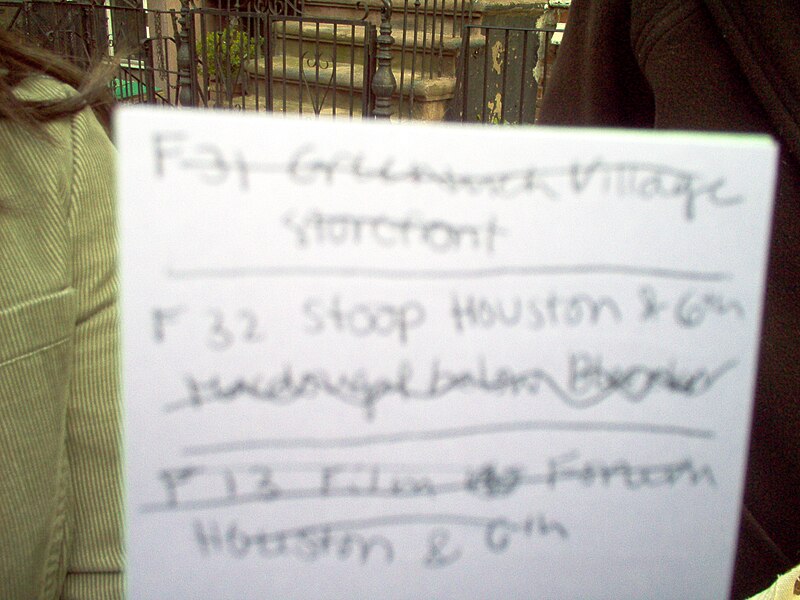 F-31 Greenwich Village
storefront
F 32 Stoop Houston & 6th
Macdougal below Bleecker
F 13 Film Forum
Houston & 6th